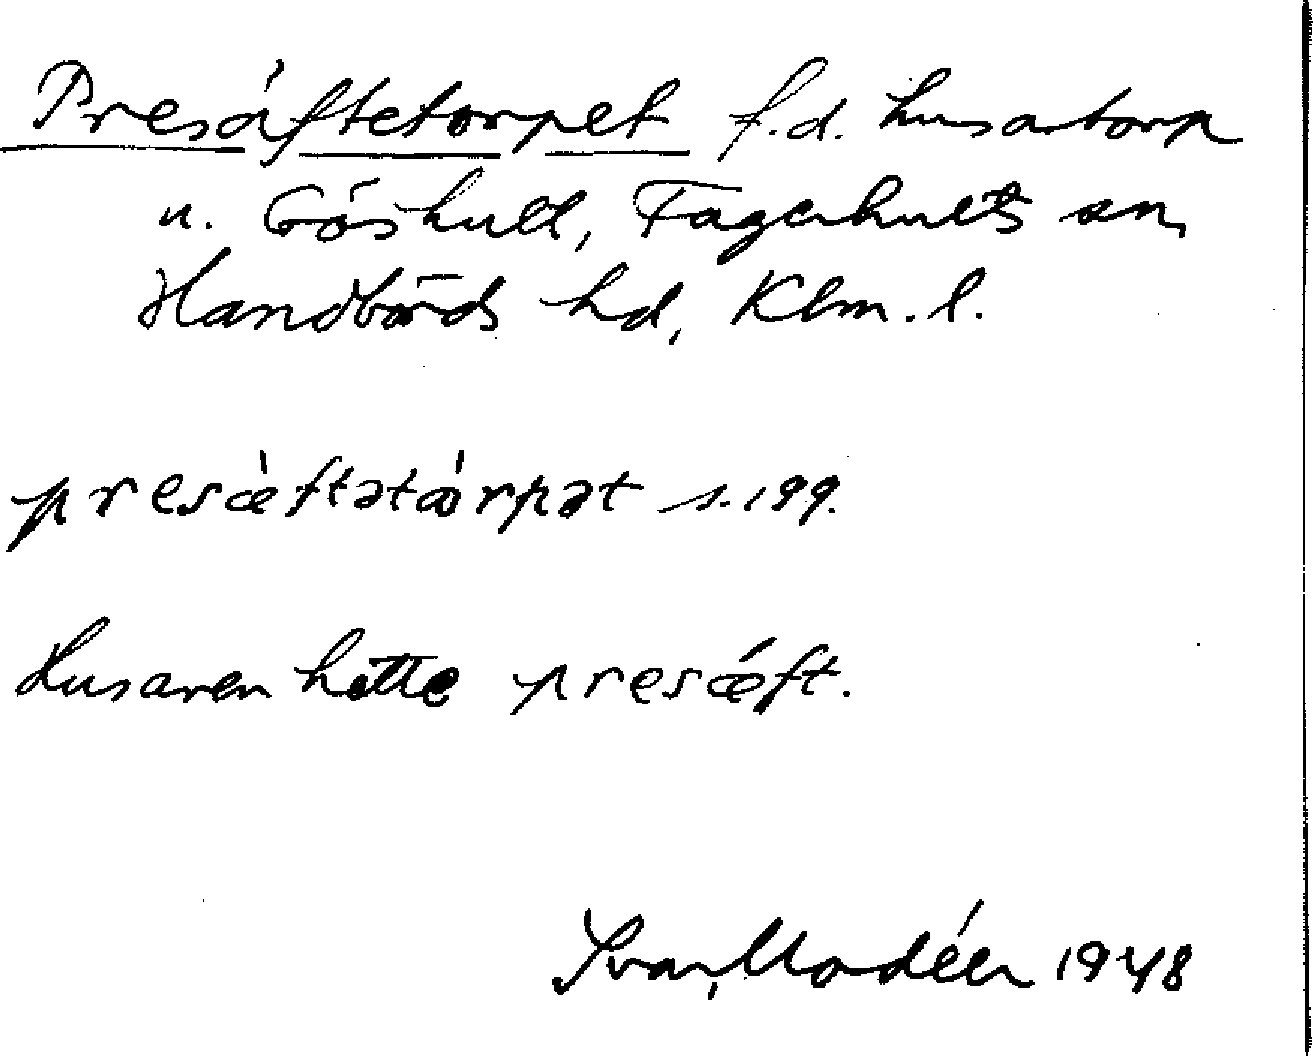 Presäftetorpet f.d. husartorp
u. Gåshult, Fagerhults sn,
Handbörds hd, Klm. l.
presæ̀ftətórpət s. 199.
Husaren hette presǽft.
Ivar Modéer 1948